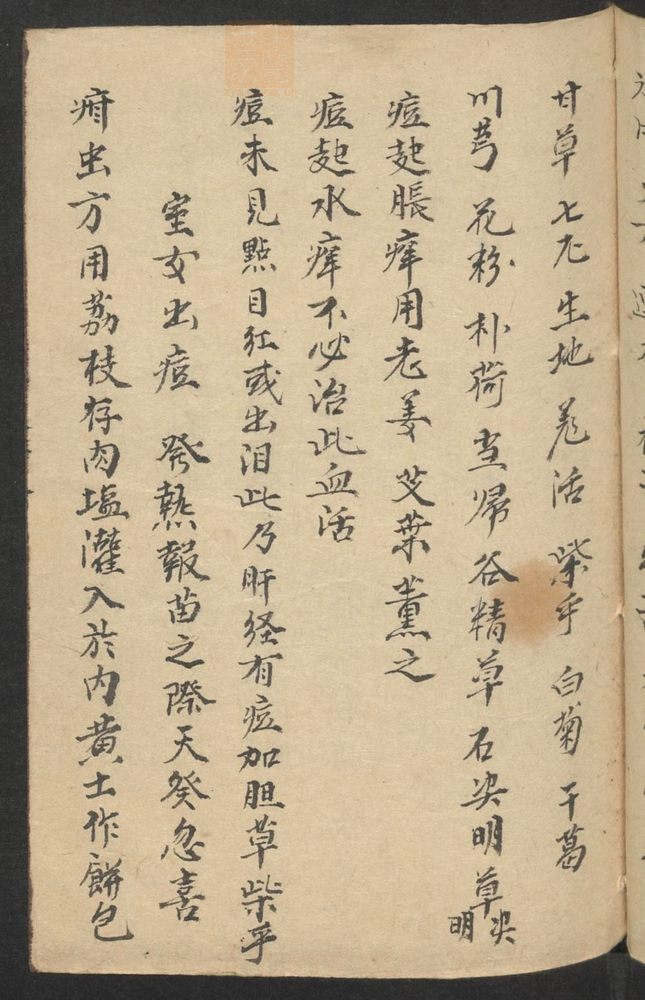 甘草 七厷 生地 羌活 柴乎 白菊 干葛
川芎 花粉 朴荷 当帰 谷精草 石决明 草决明
痘起脹痒用老姜 艾葉薰之
痘起水痒不必治此血活
痘未見點目紅或出泪此乃肝经有痘加胆草柴乎
室女出痘 発熱報苗之際天癸忽喜
疳虫方用荔枝存肉塩灌入於内黄土作餅包